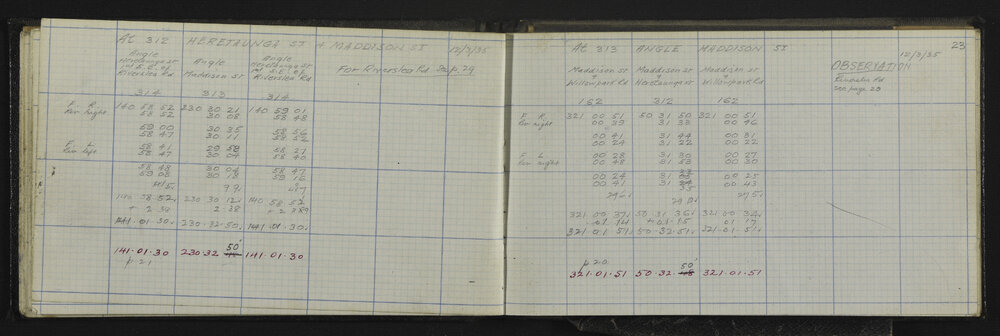 At 312 HERETAUNGA ST & MADDISON ST 12/3/35
Angle Heretaunga St Int S.E. of Riverslea Rd
Angle Maddison St
Angle Heretaunga St Int S.E. of Riverslea Rd
For Riverslea Rd See p. 29
314 313 314
F R 140 58 52 230 30 21 140 59 01
Rev Right 58 52 30 08 58 48
59 00 30 35 58 56
58 47 30 11 58 22
F L 58 41 29 58 58 27
Rev Left 58 47 30 04 58 40
58 43 30 04 58 47
59 08 30 18 59 16
140 58 52 230 30 12 140 58 52
141.01.30 230.32.50 141.01.30
141.01.30 230.32 50 141.01.30
p 21
23
At 313 ANGLE MADDISON ST 12/3/35
Maddison St & Willowpark Rd
Maddison St & Heretaunga St
Maddison St & Willowpark Rd
OBSERVATION
see page 28
162 312 162
F R 321 00 51 50 31 50 321 00 51
Rev right 00 39 31 33 00 46
00 41 31 44 00 31
00 24 31 22 00 22
F L 00 28 31 30 00 27
Rev right 00 48 31 53 00 30
00 24 31 00 25
00 41 31 00 43
321 00 37 50 31 36 321 00 34
01 14 + 01.15 01 17
321.01 51 50.32.51 321.01.51
p 20
321.01.51 50.32. 50 321.01.51